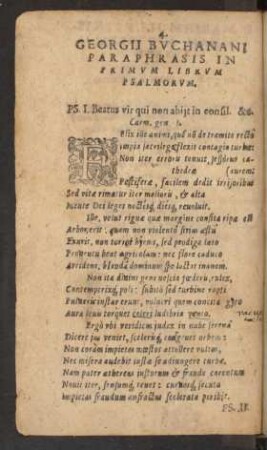 4.
GEORGII BVCHANANI
PARAPHRASIS IN
PRIMVM LIBRVM
PSALMORVM.
PS. I. Beatus vir qui non abijt in consil. &c.
Carm. gen
Felix ille animi, quē nō de tramite rectū
impia sacrilegæ flexit contagio turbæ:
Non iter erroru tenuit, sessorus ca-
thedræ
Pestiferæ, facilem dedit irrisoribus
Sed vitæ rimatur iter melioris, & alta
mente Dei leges noctesq, diesq, reuoluit.
Ille, velut riguæ quæ margine consita ripæ est
Arbor, erit: quam non violento Sirius æstu
Exurit, non torret hyems, sed prodiga læto
Prouentu beat agricolam: nec flore caduco
Arridens, blanda dominum spe lactat inanem.
Non ita diuini gens nescia fœderis, exlex,
Contemtrixq, poli: subitò sed turbine rapti
Pulueris instar erunt, volucri quem concita gyro
Aura leui torquet ludibria
Ergò vbi veridicus iudex in nube serena
Dicere ius veniet, scelerisq, coarguet orbem:
Non coràm impietas mœstos attollere vultus,
Nec misera audebit iustæ se adiungere turbæ.
Nam pater æthereus iustorum & fraude carentum
Nouit iter, sensumq, tenet: curuosq, secuta
Impietas fraudum anfractus scelerata peribit.
PS. II.